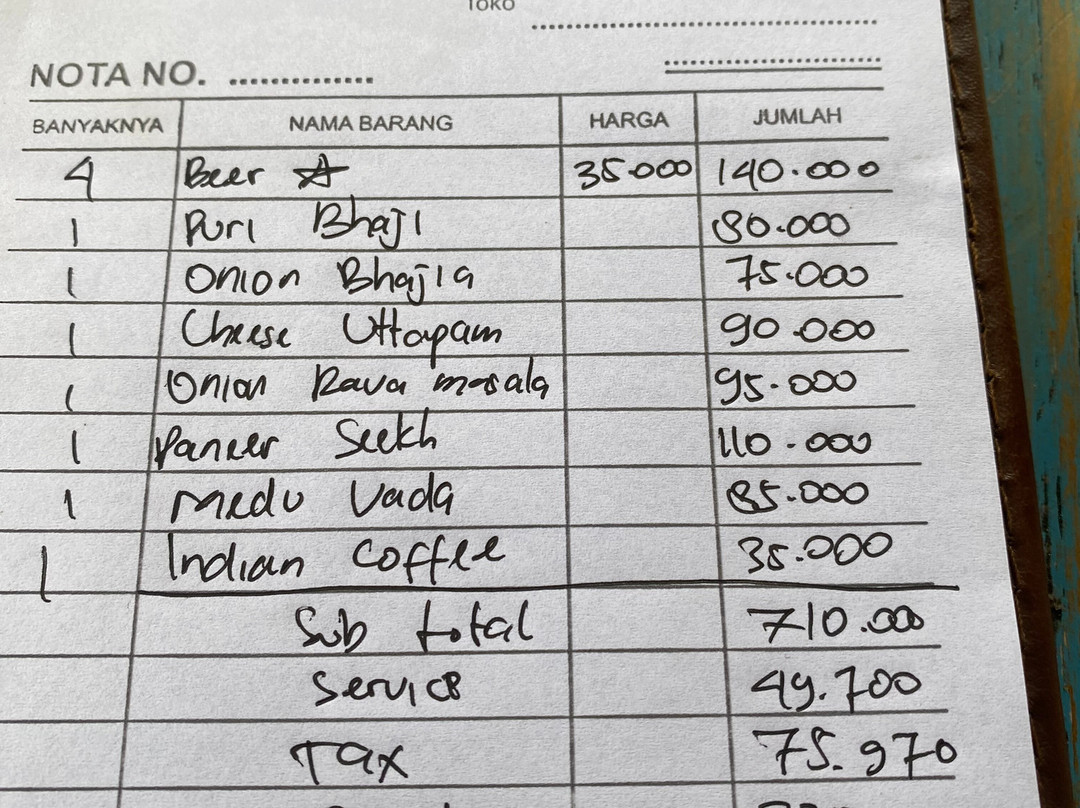 TOKO
NOTA NO.
BANYAKNYA NAMA BARANG HARGA JUMLAH
4 Beer 35.000 140.000
1 Puri Bhaji 80.000
1 Onion Bhajia 75.000
1 Cheese Uttapam 90.000
1 Onion Rava masala 95.000
1 Paneer Seekh 110.000
1 Medu Vada 85.000
1 Indian Coffee 35.000
Sub total 710.000
Service 49.700
Tax 75.970